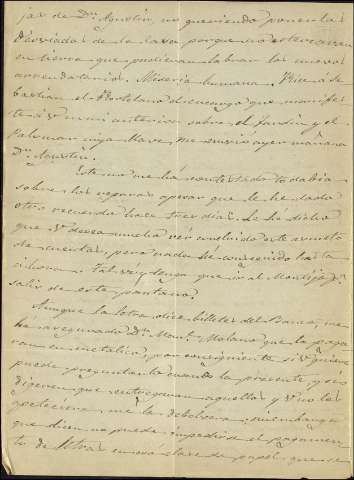 jas de Dn. Agustin, no queriendo poner las
de la casa porque no estercaran
en tierra que pudieran labrar los nuevos
arrendatarios. Miseria humana. Vino a Se
bastian el Hortelano el encargo que manifes
té a V en mi anterior sobre el jardin y el
Palomar cuya llave me envió ayer mañana
Dn. Agustin.
Este no me há contestado todabia
sobre los reparos apesar que le he dado
otro recuerdo hace tres dias. Le he dicho
que V. desea mucho ver concluido este asunto
de cuentas, pero nada he conseguido hasta
ahora. Tal vez tenga que ir al Montijo pa.
salir de este pantano.
Aunque la letra dice billetes del Banco, me
há asegurado Dn. Manl. Molano que la paga
ran en metalico, por consiguiente si V quiere
puede preguntarlo cuando la presente y si
digeren que entregaran aquellos y V no los
apeteciera, me la debolvera; sin embargo
que dicen no puede impedirse el pagamen
to de letras en otra clase de papel que se